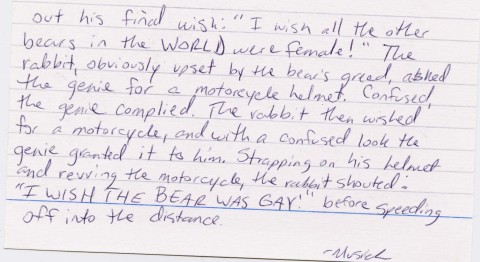 out his final wish: "I wish all the other
bears in the WORLD were female!" The
rabbit, obviously upset by the bear's greed, asked
the genie for a motorcycle helmet. Confused,
the genie complied. The rabbit then wished
for a motorcycle, and with a confused look the
genie granted it to him. Strapping on his helmet
and revving the motorcycle, the rabbit shouted:
"I WISH THE BEAR WAS GAY!" before speeding
off into the distance.
~Musick